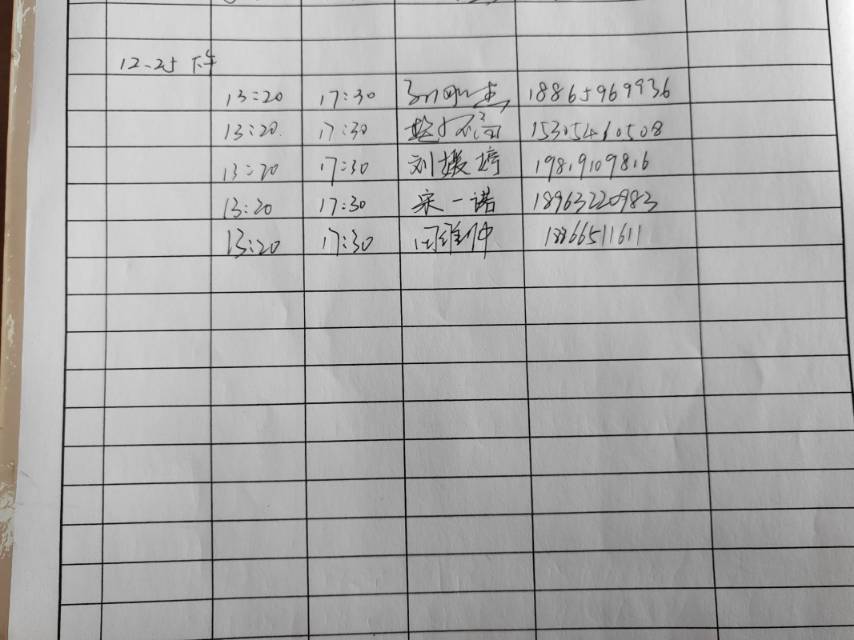 12.25 下午
13:20 17:30 18865969936
13:20 17:30 15305460508
13:20 17:30 刘媛婷 19819109816
13:20 17:30 宋一诺 18963220983
13:20 17:30 闫维仲 18866511611